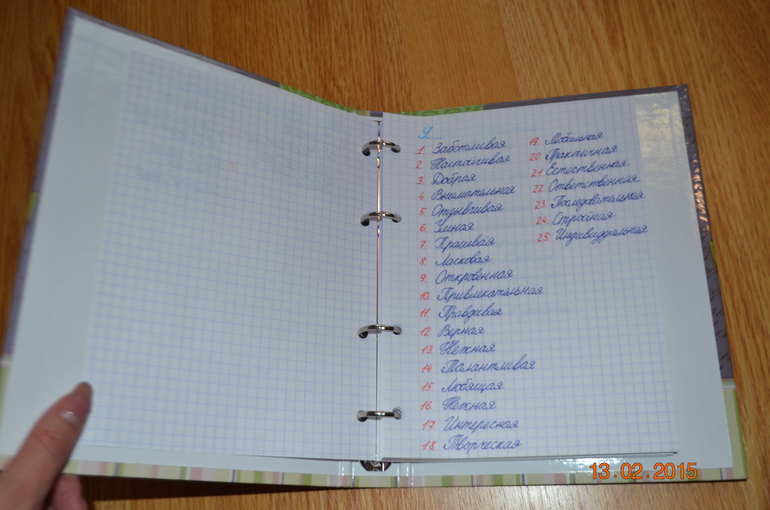 Я...
1. Заботливая
2. Настойчивая
3. Добрая
4. Внимательная
5. Отзывчивая
6. Умная
7. Красивая
8. Ласковая
9. Откровенная
10. Привлекательная
11. Правдивая
12. Верная
13. Нежная
14. Талантливая
15. Любящая
16. Нежная
17. Интересная
18. Творческая
19. Мобильная
20. Практичная
21. Естественная
22. Ответственная
23. Последовательная
24. Стройная
25. Индивидуальная
13.02.2015